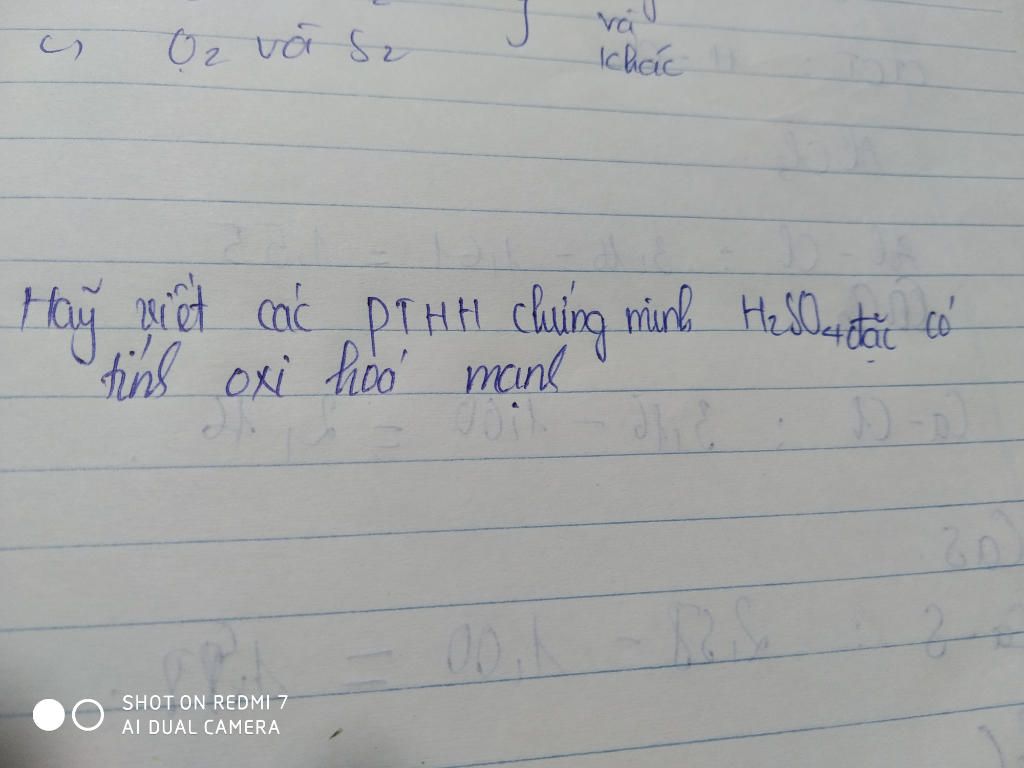 c) O₂ và S₂ và
khác
Hãy viết các PTHH chứng minh H₂SO₄ đặc có
tính oxi hoá mạnh
SHOT ON REDMI 7
AI DUAL CAMERA